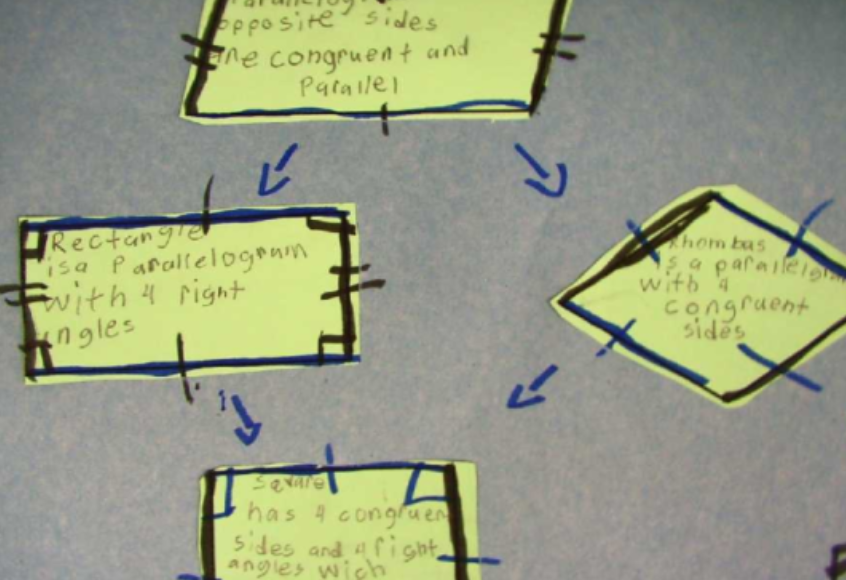 opposite sides
are congruent and
Parallel
Rectangle
is a Parallelogram
with 4 right
angles
Rhombas
is a parallelogram
with 4
congruent
sides
Square
has 4 congruen
sides and 4 right
angles wich